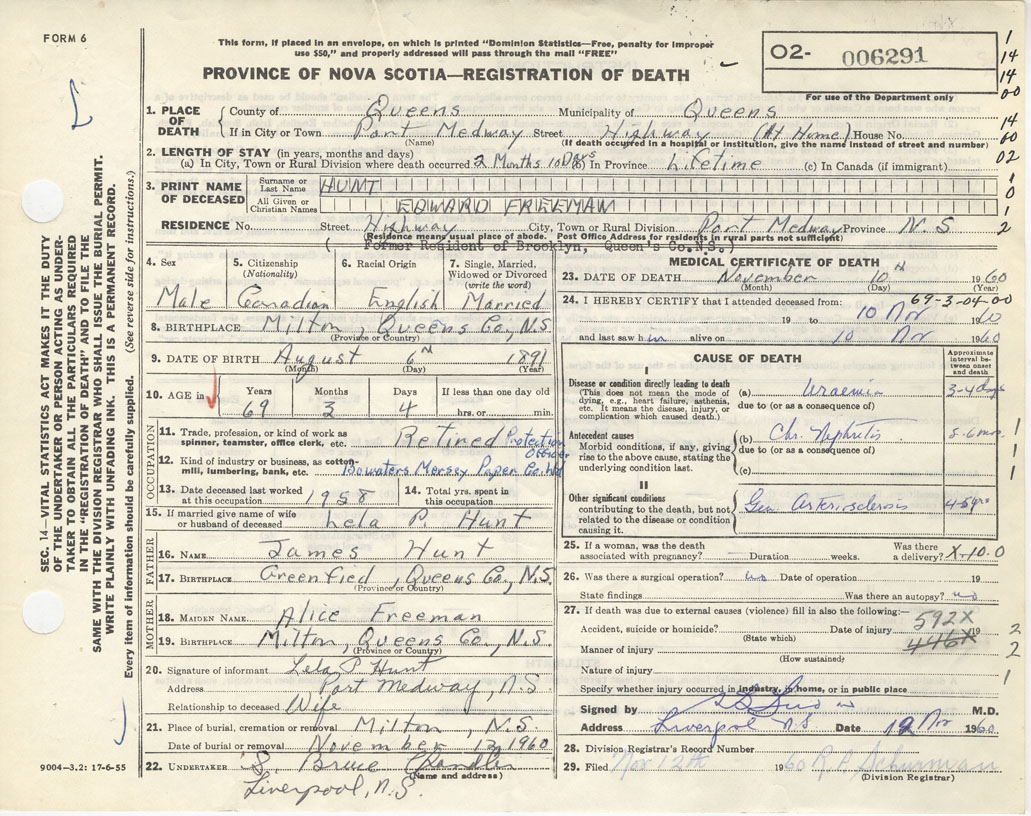 FORM 6
This form, if placed in an envelope, on which is printed "Dominion Statistics—Free, penalty for improper
use $50," and properly addressed will pass through the mail "FREE"
PROVINCE OF NOVA SCOTIA—REGISTRATION OF DEATH
O2- 006291
For use of the Department only
1
14
14
00
14
60
02
1
0
1
2
1. PLACE OF DEATH
County of Queens Municipality of Queens
If in City or Town Port Medway Street Highway (At Home) House No.
(Name) (If death occurred in a hospital or institution, give the name instead of street and number)
2. LENGTH OF STAY (in years, months and days)
(a) In City, Town or Rural Division where death occurred 2 Months 10 Days (b) In Province Lifetime (c) In Canada (if immigrant)
3. PRINT NAME OF DECEASED
Surname or Last Name HUNT
All Given or Christian Names EDWARD FREEMAN
RESIDENCE No. Street Highway City, Town or Rural Division Port Medway Province N.S.
(Residence means usual place of abode. Post Office Address for residents in rural parts not sufficient)
( Former Resident of Brooklyn, Queen's Co. N.S. )
4. Sex Male
5. Citizenship (Nationality) Canadian
6. Racial Origin English
7. Single, Married, Widowed or Divorced (write the word) Married
8. BIRTHPLACE Milton, Queens Co, N.S.
(Province or Country)
9. DATE OF BIRTH August 6th 1891
(Month) (Day) (Year)
10. AGE in Years 69 Months 3 Days 4 If less than one day hrs. or min.
OCCUPATION
11. Trade, profession, or kind of work as spinner, teamster, office clerk, etc. Retired Protection Officer
12. Kind of industry or business, as cotton-mill, lumbering, bank, etc. Bowaters Mersey Paper Co. Ltd
13. Date deceased last worked at this occupation 1958
14. Total yrs. spent in this occupation
15. If married give name of wife or husband of deceased Lela P. Hunt
FATHER
16. NAME James Hunt
17. BIRTHPLACE Greenfied, Queens Co, N.S.
(Province or Country)
MOTHER
18. MAIDEN NAME Alice Freeman
19. BIRTHPLACE Milton, Queens Co, N.S.
(Province or Country)
20. Signature of informant Lela P Hunt
Address Port Medway, N.S.
Relationship to deceased Wife
21. Place of burial, cremation or removal Milton, N.S.
Date of burial or removal November 12 1960
22. UNDERTAKER S. Bruce Chandler
(Name and address)
Liverpool, N.S.
MEDICAL CERTIFICATE OF DEATH
23. DATE OF DEATH November 10th 1960
(Month) (Day) (Year)
24. I HEREBY CERTIFY that I attended deceased from: 69-3-04-00
19 to 10 Nov 1960
and last saw h im alive on 10 Nov 1960
CAUSE OF DEATH
Approximate interval between onset and death
I
Disease or condition directly leading to death
(This does not mean the mode of dying, e.g., heart failure, asthenia, etc. It means the disease, injury, or complication which caused death.)
(a) Uraemia 3-4 days
due to (or as a consequence of)
Antecedent causes
Morbid conditions, if any, giving rise to the above cause, stating the underlying condition last.
(b) Chr. Nephritis 5-6 mos 1
due to (or as a consequence of) 1
(c) 1
II
Other significant conditions
contributing to the death, but not related to the disease or condition causing it.
Gen Arteriosclerosis 4-5 yrs
25. If a woman, was the death associated with pregnancy? Duration weeks. Was there a delivery? X-10.0
26. Was there a surgical operation? no Date of operation 19
State findings Was there an autopsy? no
27. If death was due to external causes (violence) fill in also the following:—
592X
Accident, suicide or homicide? Date of injury 19 2
(State which) 446X
Manner of injury 2
(How sustained)
Nature of injury 1
Specify whether injury occurred in industry, in home, or in public place
Signed by M.D.
Address Liverpool N.S Date 12 Nov 1960
28. Division Registrar's Record Number
29. Filed Nov 12th 1960 R.P. Schurman
(Division Registrar)
SEC. 14—VITAL STATISTICS ACT MAKES IT THE DUTY
OF THE UNDERTAKER OR PERSON ACTING AS UNDER-
TAKER TO OBTAIN ALL THE PARTICULARS REQUIRED
IN THE "REGISTRATION OF DEATH" AND TO FILE THE
SAME WITH THE DIVISION REGISTRAR WHO SHALL ISSUE THE BURIAL PERMIT.
WRITE PLAINLY WITH UNFADING INK. THIS IS A PERMANENT RECORD.
Every item of information should be carefully supplied. (See reverse side for instructions.)
9004—3.2: 17-6-55